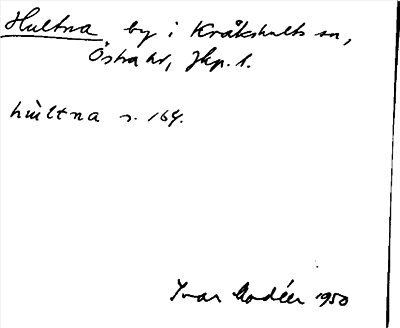 Hultna by i Kråkshults sn,
Östra hr, Jkp. l.
hu̇ltna s. 164.
Ivar Modéer 1950